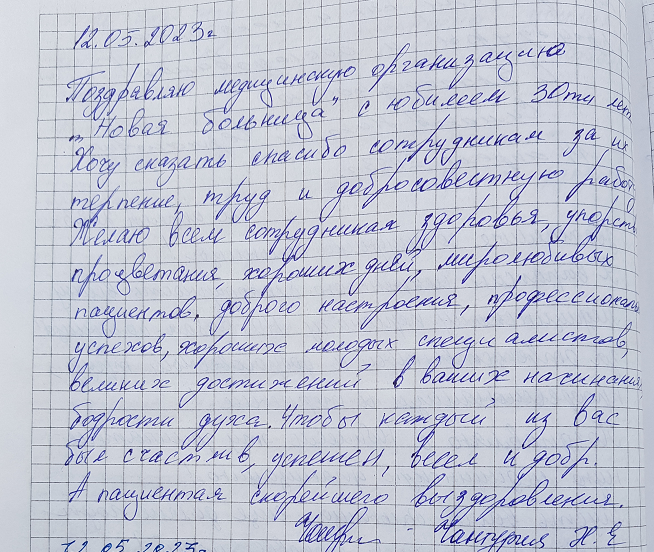 12.05.2023г
Поздравляю медицинскую организацию
„Новая больница" с юбилеем 30ти лет
Хочу сказать спасибо сотрудникам за их
терпение, труд и добросовестную работу
Желаю всем сотрудникам здоровья, упорств
процветания, хороших дней, миролюбивых
пациентов, доброго настроения, профессиональ
успехов, хороших молодых специалистов,
великих достижений в ваших начинаний,
бодрости духа. Чтобы каждый из вас
был счастлив, успешен, весел и добр.
А пациентам скорейшего выздоровления.
Чантурия Н.Е
12.05.2023г